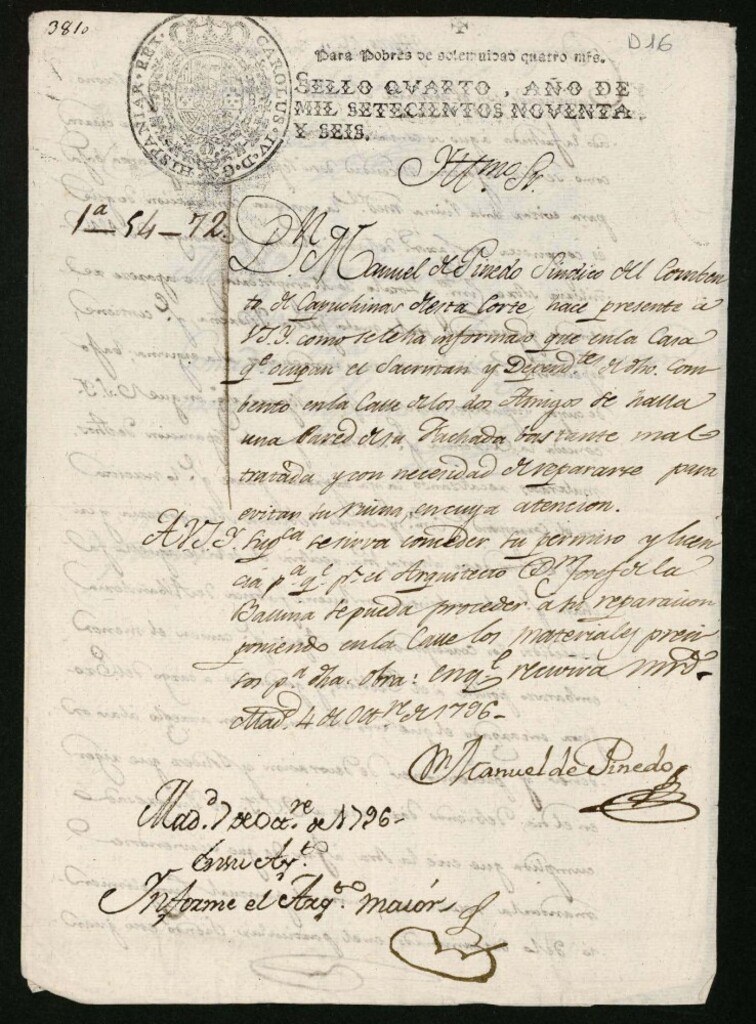 3810
D16
HISPANIAR·REX·CAROLUS·IV·D·G·
Para Pobres de solemnidad quatro mrs.
SELLO QVARTO, AÑO DE
MIL SETECIENTOS NOVENTA
Y SEIS.
Yttmo. Sr.
1ª 54-72.
Dn. Manuel de Pinedo Sindico del Comben
to de Capuchinas de esta Corte hace presente a
V.S.Y. como se le ha informado que en la Casa
qe. ocupan el Sacristan y Depend.tes de dho. Com
bento en la Calle de los dos Amigos se halla
una Pared de su Fachada bastante mal
tratada y con necesidad de repararse para
evitar su Ruina, en cuya atencion.
A V.S.Y. Supca. se sirva conceder su permiso y licen
cia pa. qe. pr. el Arquitecto Dn. Josef de la
Ballina se pueda proceder a su reparacion
poniendo en la Calle los materiales preci
sos pa. dha. obra: en qe. recivira mrd.
Madd. 4 de Octre. de 1796-
Mn. Manuel de Pinedo
Madd. 7 de Octre. de 1796-
En su Ayto.
Informe el Arqto. maiór